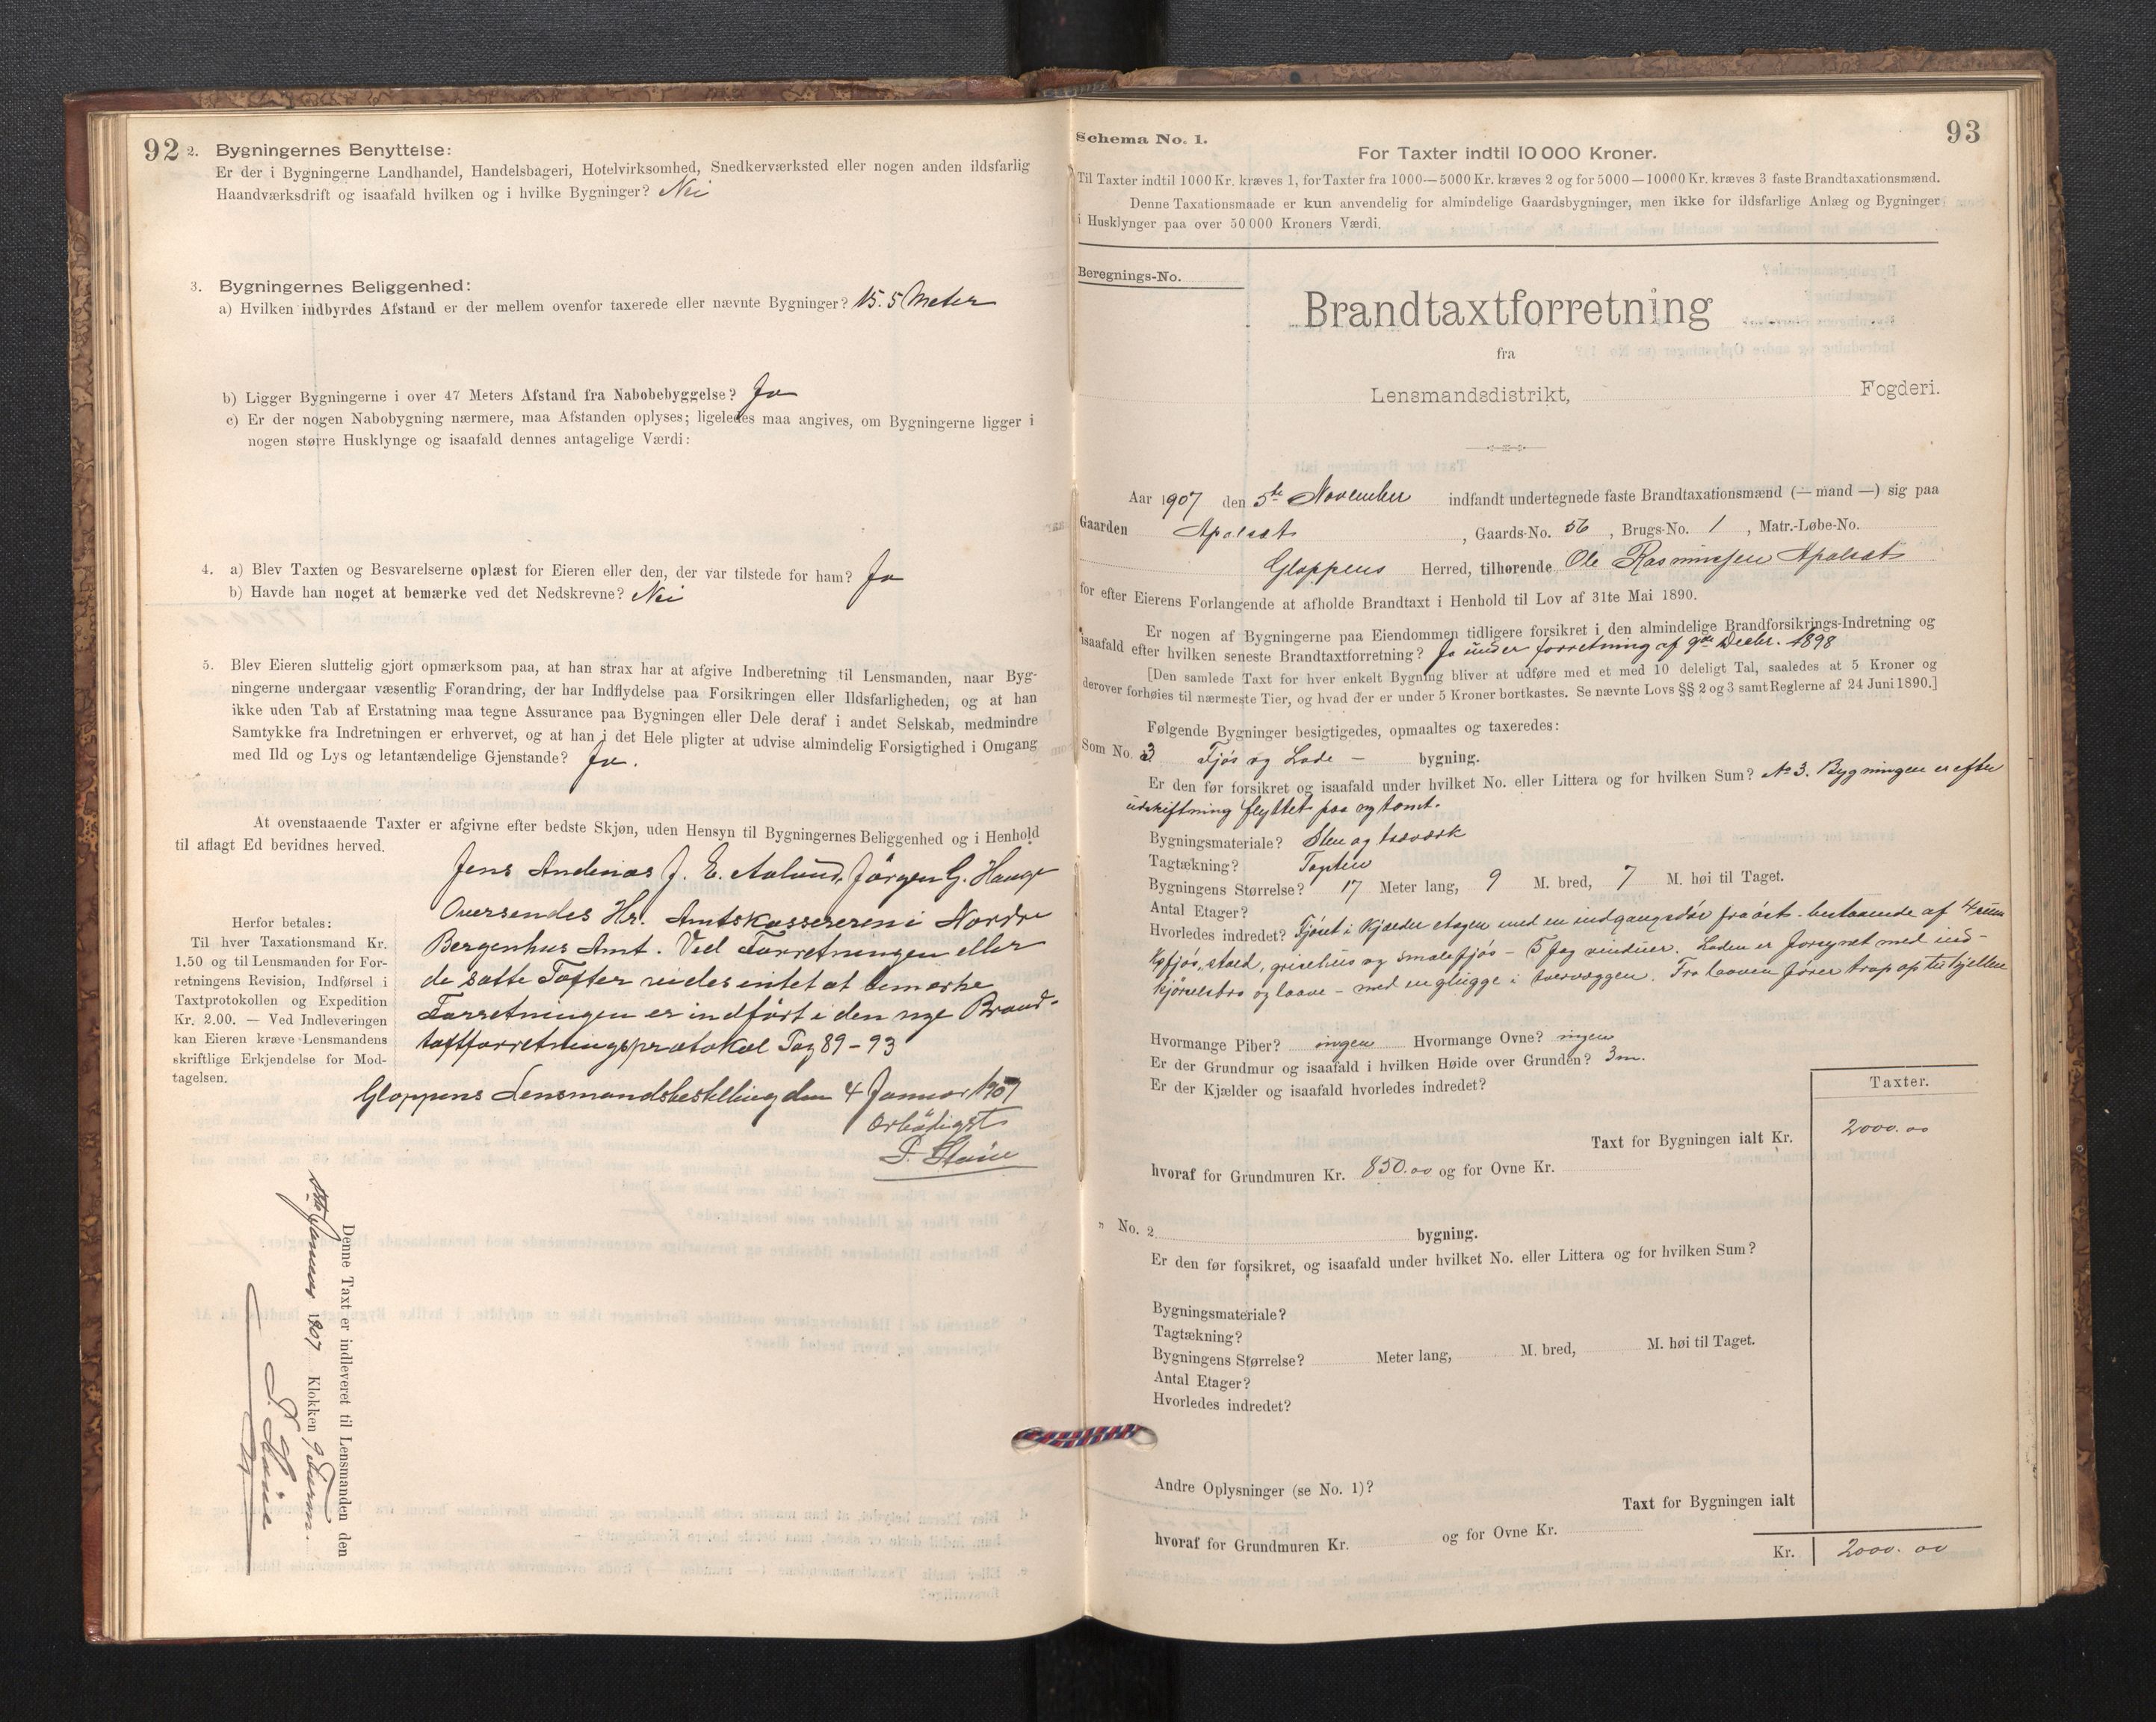 92
2. Bygningernes Benyttelse:
Er der i Bygningerne Landhandel, Handelsbageri, Hotelvirksomhed, Snedkerværksted eller nogen anden ildsfarlig
Haandværksdrift og isaafald hvilken og i hvilke Bygninger? Nei
3. Bygningernes Beliggenhed:
a) Hvilken indbyrdes Afstand er der mellem ovenfor taxerede eller nævnte Bygninger? 15.5 Meter
b) Ligger Bygningerne i over 47 Meters Afstand fra Nabobebyggelse? Ja
c) Er der nogen Nabobygning nærmere, maa Afstanden oplyses; ligeledes maa angives, om Bygningerne ligger i
nogen større Husklynge og isaafald dennes antagelige Værdi:
4. a) Blev Taxten og Besvarelserne oplæst for Eieren eller den, der var tilstede for ham? Ja
b) Havde han noget at bemærke ved det Nedskrevne? Nei
5. Blev Eieren sluttelig gjort opmærksom paa, at han strax har at afgive Indberetning til Lensmanden, naar Byg-
ningerne undergaar væsentlig Forandring, der har Indflydelse paa Forsikringen eller Ildsfarligheden, og at han
ikke uden Tab af Erstatning maa tegne Assurance paa Bygningen eller Dele deraf i andet Selskab, medmindre
Samtykke fra Indretningen er erhvervet, og at han i det Hele pligter at udvise almindelig Forsigtighed i Omgang
med Ild og Lys og letantændelige Gjenstande? Ja.
At ovenstaaende Taxter er afgivne efter bedste Skjøn, uden Hensyn til Bygningernes Beliggenhed og i Henhold
til aflagt Ed bevidnes herved.
Jens Andenæs J. E. Aalund, Jörgen G. Hauge
Oversendes Hr. Amtskassereren i Nordre
Bergenhus Amt. Ved Forretningen eller
de satte Taxter vides intet at bemærke
Forretningen er indført i den nye Brand-
taxtforretningsprotokol Pag 89-93
Gloppens Lensmandsbestilling den 4 Januar 1907
Ærbödigst
Herfor betales:
Til hver Taxationsmand Kr.
1.50 og til Lensmanden for For-
retningens Revision, Indførsel i
Taxtprotokollen og Expedition
Kr. 2.00. — Ved Indleveringen
kan Eieren kræve Lensmandens
skriftlige Erkjendelse for Mod-
tagelsen.
Denne Taxt er indleveret til Lensmanden den
Januar 1907 Klokken 9 Form.
93
Schema No. 1.
For Taxter indtil 10 000 Kroner.
Til Taxter indtil 1000 Kr. kræves 1, for Taxter fra 1000—5000 Kr. kræves 2 og for 5000—10000 Kr. kræves 3 faste Brandtaxationsmænd.
Denne Taxationsmaade er kun anvendelig for almindelige Gaardsbygninger, men ikke for ildsfarlige Anlæg og Bygninger
i Husklynger paa over 50 000 Kroners Værdi.
Beregnings-No.
Brandtaxtforretning
fra
Lensmandsdistrikt, Fogderi.
Aar 1907 den 5te November indfandt undertegnede faste Brandtaxationsmænd (— mand —) sig paa
Gaarden Apalset, Gaards-No. 56, Brugs-No. 1, Matr.-Løbe-No.
Gloppens Herred, tilhørende Ole Rasmussen Apalset
for efter Eierens Forlangende at afholde Brandtaxt i Henhold til Lov af 31te Mai 1890.
Er nogen af Bygningerne paa Eiendommen tidligere forsikret i den almindelige Brandforsikrings-Indretning og
isaafald efter hvilken seneste Brandtaxtforretning? Ja under forretning af 9de Decbr. 1898
[Den samlede Taxt for hver enkelt Bygning bliver at udføre med et med 10 deleligt Tal, saaledes at 5 Kroner og
derover forhøies til nærmeste Tier, og hvad der er under 5 Kroner bortkastes. Se nævnte Lovs §§ 2 og 3 samt Reglerne af 24 Juni 1890.]
Følgende Bygninger besigtigedes, opmaaltes og taxeredes:
Som No. 3 Fjös og Lade - bygning.
Er den før forsikret og isaafald under hvilket No. eller Littera og for hvilken Sum? No 3. Bygningen er efter
udskiftning flyttet paa ny tomt.
Bygningsmateriale? Sten og træværk
Tagtækning?
Bygningens Størrelse? 17 Meter lang, 9 M. bred, 7 M. høi til Taget.
Antal Etager?
Hvorledes indredet? Fjöset i Kjælder etagen med en indgangsdör fra öst - bestaaende af 4 rum
Kofjös, stald, grisehus og smalefjös - 5 fag vinduer. Laden er forsynet med ind-
kjörselsbro og laave - med en glugge i tvervæggen. Fra laaven förer trap op til hjellen
Hvormange Piber? ingen Hvormange Ovne? ingen
Er der Grundmur og isaafald i hvilken Høide over Grunden? 3 m.
Er der Kjælder og isaafald hvorledes indredet?
Taxter.
Taxt for Bygningen ialt Kr. 2000.00
hvoraf for Grundmuren Kr. 850.00 og for Ovne Kr.
" No. 2 bygning.
Er den før forsikret, og isaafald under hvilket No. eller Littera og for hvilken Sum?
Bygningsmateriale?
Tagtækning?
Bygningens Størrelse? Meter lang, M. bred, M. høi til Taget.
Antal Etager?
Hvorledes indredet?
Andre Oplysninger (se No. 1)?
Taxt for Bygningen ialt
hvoraf for Grundmuren Kr. og for Ovne Kr.
Kr. 2000.00